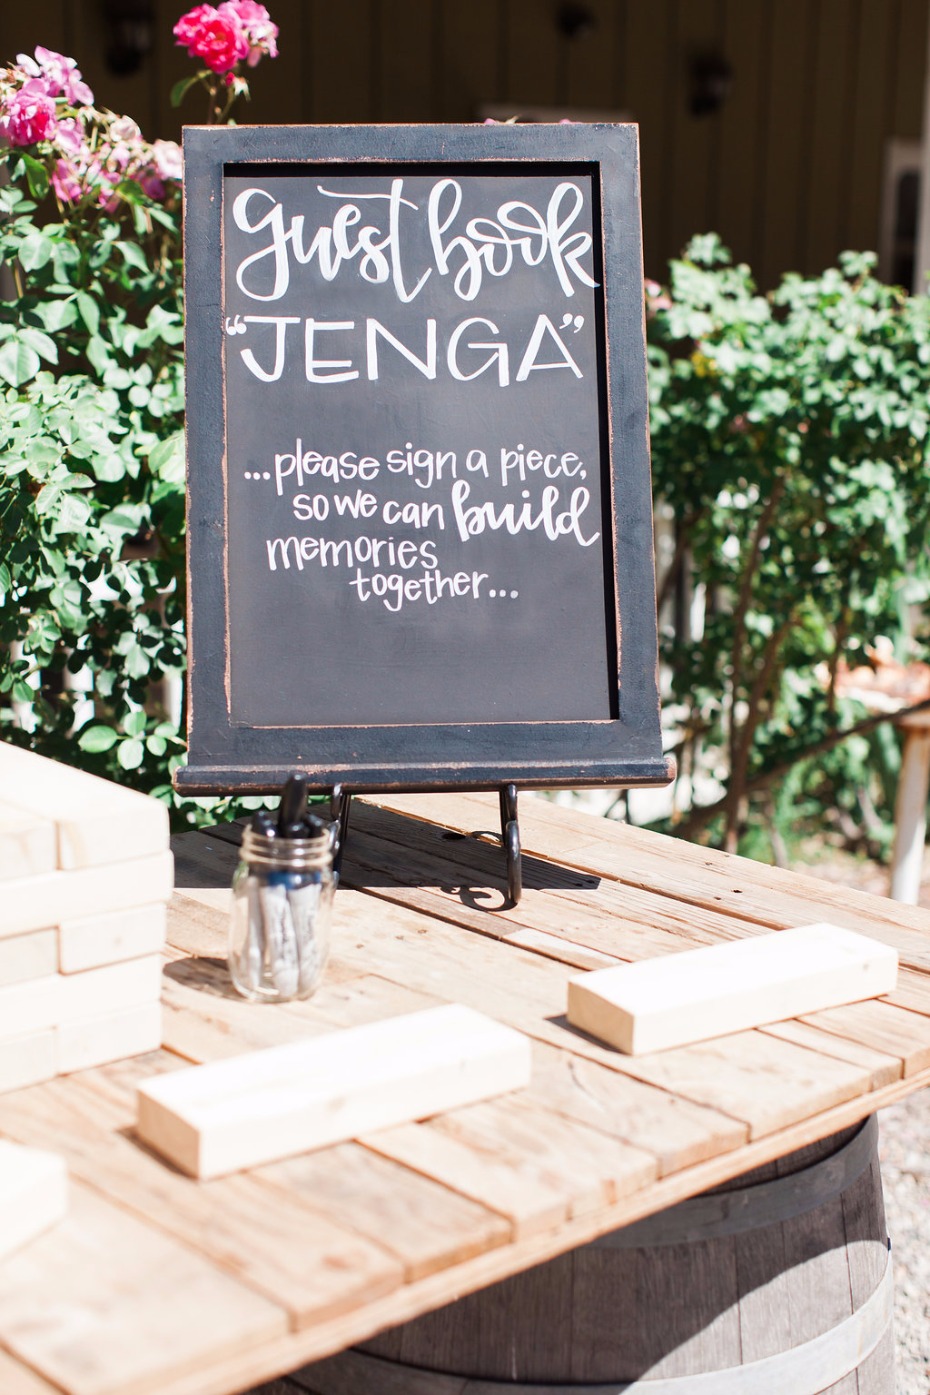 guest book
“JENGA”
...please sign a piece,
so we can build
memories
together...